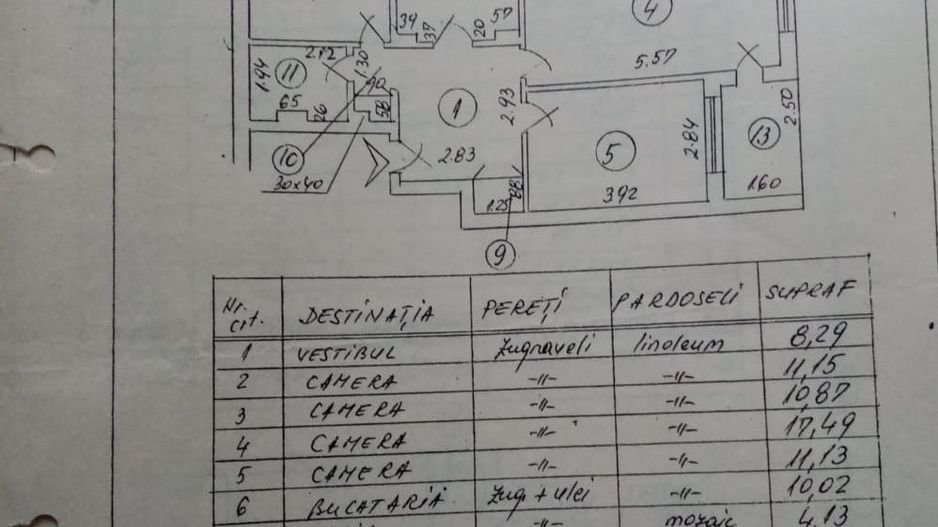 39
37
20
57
4
5.57
2.12
1.94
11
1.30
90
65
26
58
1
2.93
10
30x40
2.83
5
2.84
13
2.50
392
1.60
1.25
88
9
Nr. crt. DESTINAȚIA PEREȚI PARDOSELI SUPRAF
1 VESTIBUL Zugraveli linoleum 8,29
2 CAMERA -"- -"- 11,15
3 CAMERA -"- -"- 10,87
4 CAMERA -"- -"- 17,49
5 CAMERA -"- -"- 11,13
6 BUCATARIA Zug + ulei -"- 10,02
-"- mozaic 4,13